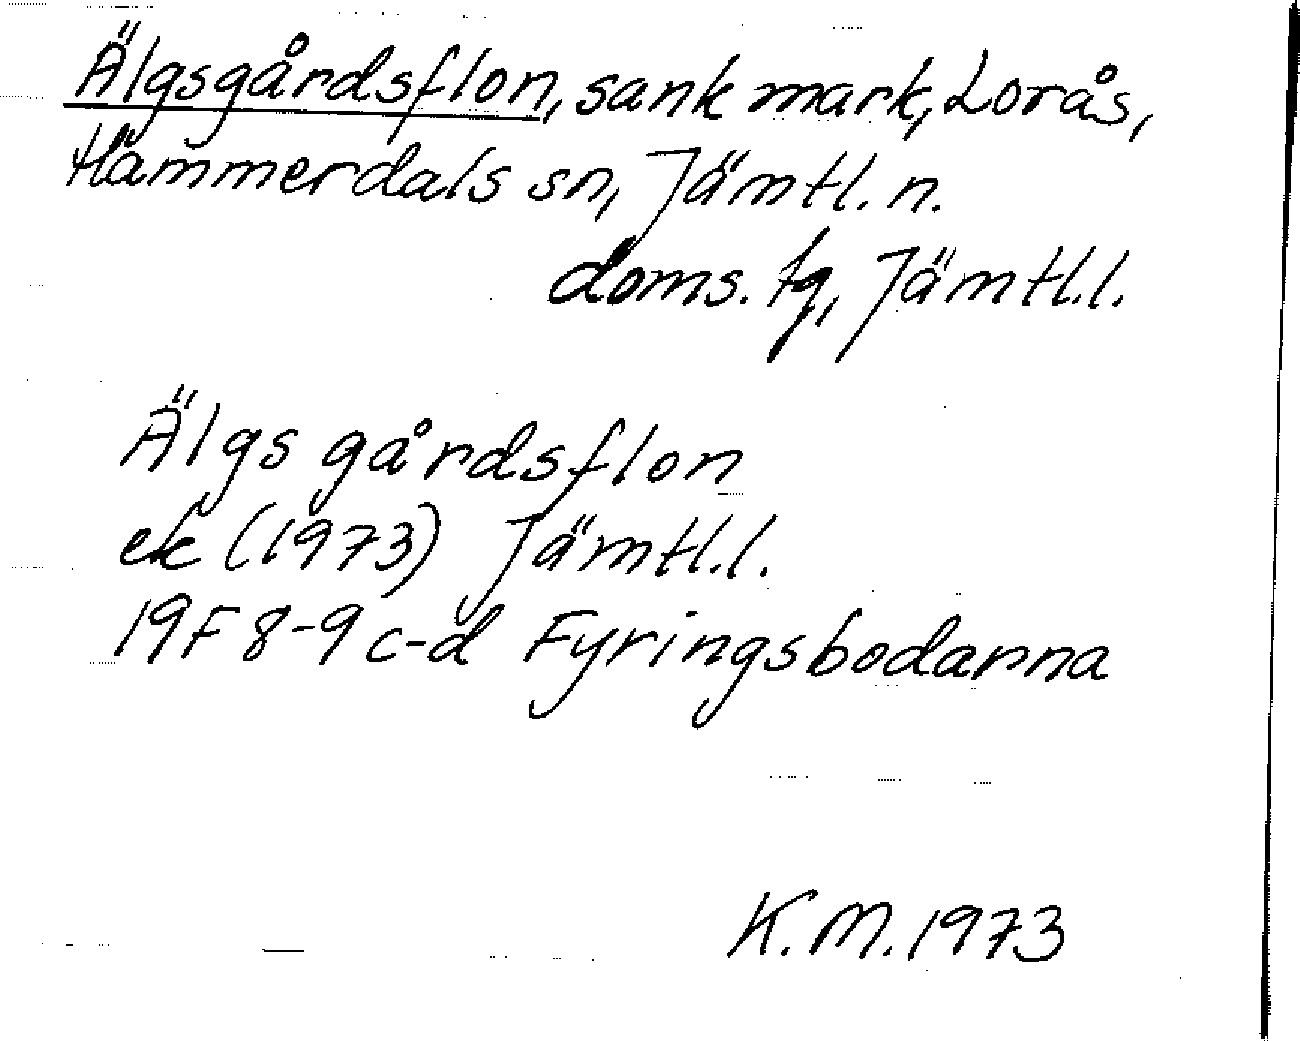 Älgsgårdsflon, sank mark, Lorås,
Hammerdals sn, Jämtl. n.
doms. tg, Jämtl.l.
Älgsgårdsflon
ek (1973) Jämtl.l.
19F 8-9 c-d Fyringsbodarna
K.M. 1973